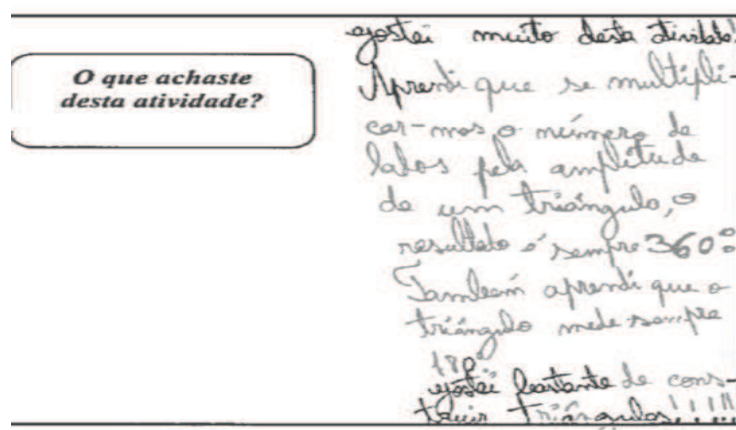 O que achaste
desta atividade?
gostei muito desta atividade!
Aprendi que se multipli-
car-mos o número de
lados pela amplitude
de um triângulo, o
resultado é sempre 360º
Também aprendi que o
triângulo mede sempre
180º
gostei bastante de cons-
truir triângulos!!!!!